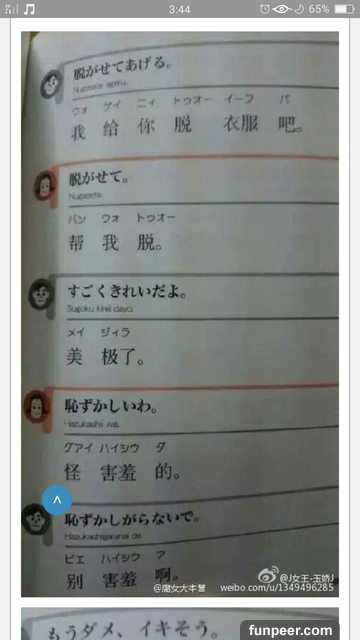 3:44
65%
脱がせてあげる。
Nugasete ageru.
ウォ ゲイ ニィ トゥオー イーフ バ
我 给 你 脱 衣服 吧。
脱がせて。
Nugasete.
バン ウォ トゥオー
帮 我 脱。
すごくきれいだよ。
Sugoku kirei dayo.
メイ ジィラ
美 极了。
恥ずかしいわ。
Hazukashii wa.
グアイ ハイシウ ダ
怪 害羞 的。
恥ずかしがらないで。
Hazukashigaranai de.
ビエ ハイシウ ア
别 害羞 啊。
@J女王-玉娇J
@腐女大本营 weibo.com/u/1349496285
funpeer.com
もうダメ、イキそう。